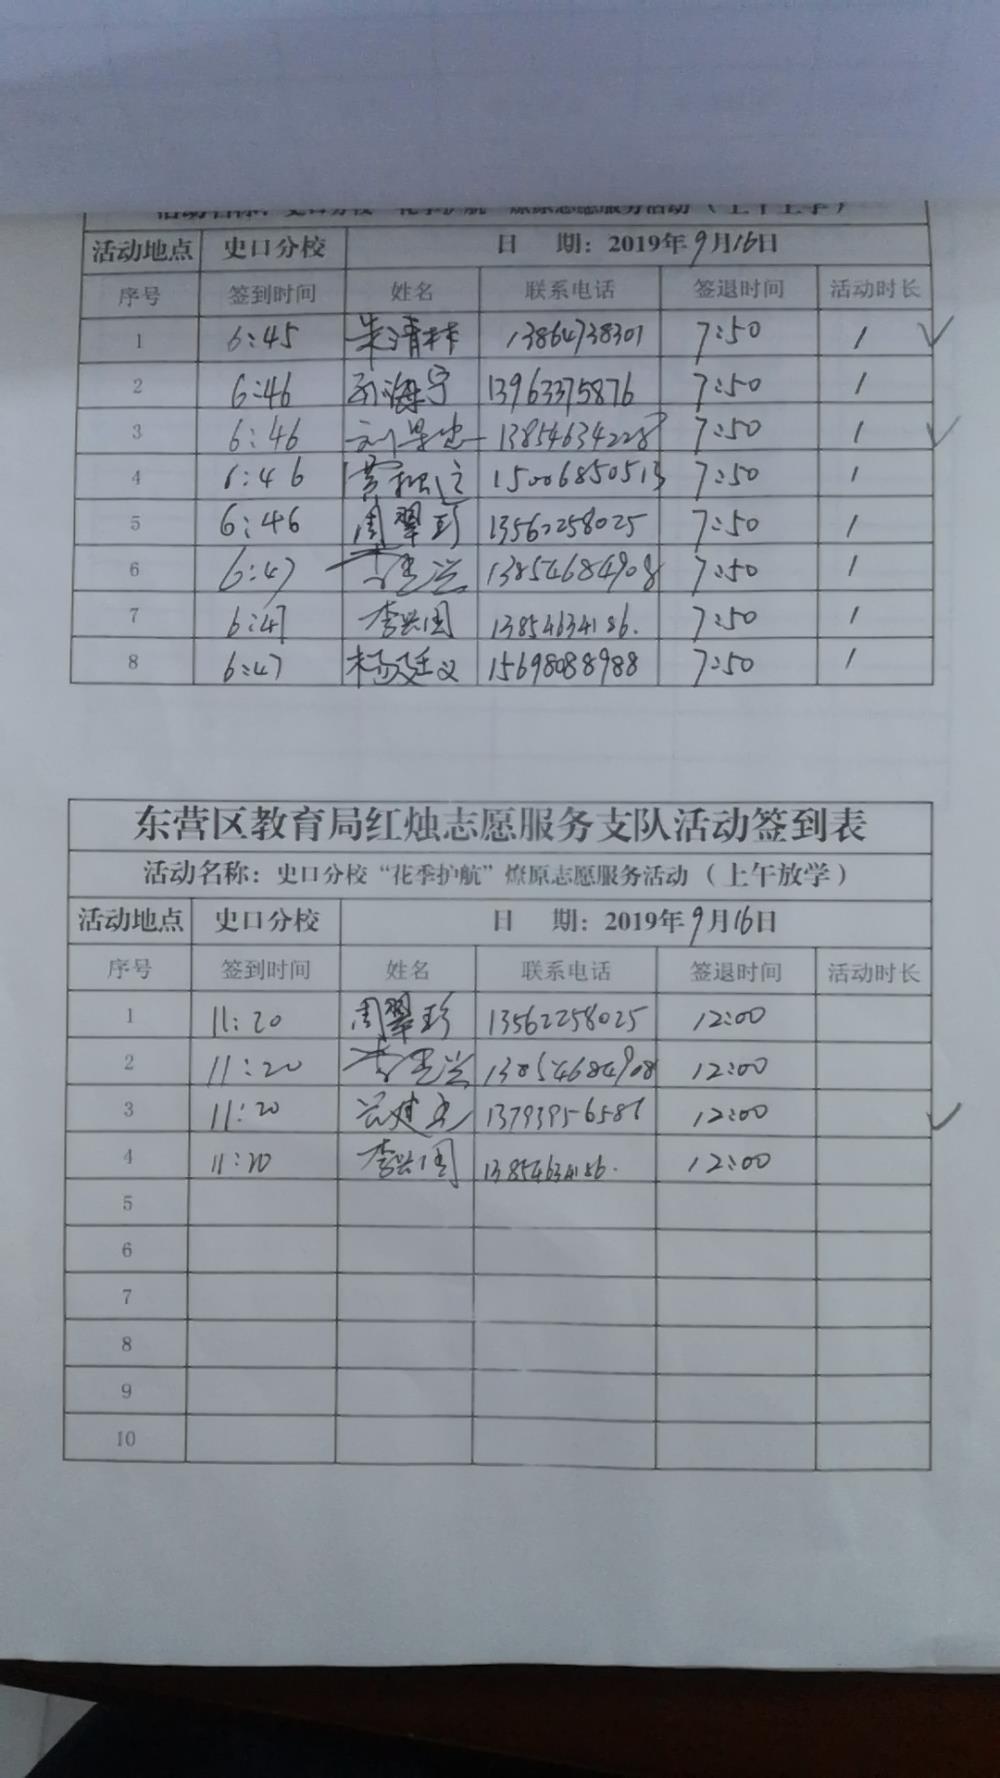 活动名称：史口分校“花季护航”燎原志愿服务活动（上午上学）
活动地点 史口分校 日 期：2019年9月16日
序号 签到时间 姓名 联系电话 签退时间 活动时长
1 6:45 朱清林 13864738301 7:50 1 ✓
2 6:46 孙海宁 13963375876 7:50 1
3 6:46 13854634228 7:50 1 ✓
4 6:46 15006850513 7:50 1
5 6:46 周翠珍 13562258025 7:50 1
6 6:47 13854684908 7:50 1
7 6:47 李兴国 13854634186. 7:50 1
8 6:47 杨廷义 15698088988 7:50 1
东营区教育局红烛志愿服务支队活动签到表
活动名称：史口分校“花季护航”燎原志愿服务活动（上午放学）
活动地点 史口分校 日 期：2019年9月16日
序号 签到时间 姓名 联系电话 签退时间 活动时长
1 11:20 周翠珍 13562258025 12:00
2 11:20 13854684908 12:00
3 11:20 13793956586 12:00 ✓
4 11:20 李兴国 13854634186. 12:00
5
6
7
8
9
10